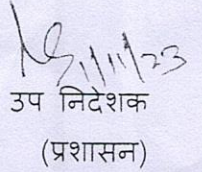 1/11/23
उप निदेशक
(प्रशासन)